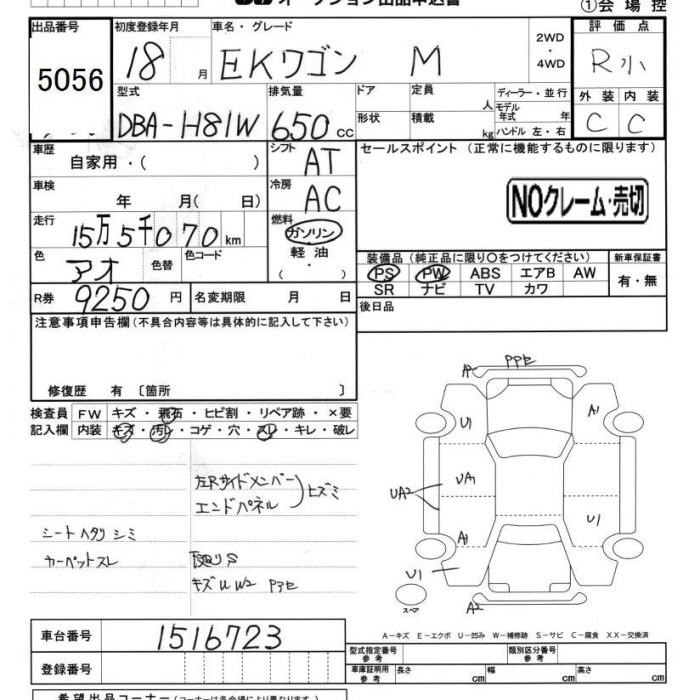 オークション出品申込書
①会場控
出品番号 初度登録年月 車名・グレード 2WD ・4WD 評価点
5056 18 月 EKワゴン M R小
型式 排気量 ドア 定員 人 ディーラー・並行 外装 内装
DBA-H81W 650 cc 形状 積載 kg モデル年式 年 ハンドル 左・右 C C
車歴 自家用・( ) シフト AT セールスポイント (正常に機能するものに限ります)
車検 年 月( 日) 冷房 AC NOクレーム・売切
走行 15万5千070km 燃料 ガソリン・軽油・( )
色 アオ 色替 色コード 装備品 (純正品に限り○をつけてください) 新車保証書
PS PW ABS エアB AW 有・無
SR ナビ TV カワ
R券 9250円 名変期限 月 日 後日品
注意事項申告欄(不具合内容等は具体的に記入して下さい)
修復歴 有 〔箇所 〕
検査員 FW キズ・飛石・ヒビ割・リペア跡・×要
記入欄 内装 キズ・汚レ・コゲ・穴・スレ・キレ・破レ
左Rサイドメンバー
エンドパネル ヒズミ
シートヘタリ シミ
カーペットスレ
下回りS
キズ U W2 Pアセ
A PPアセ
U1 A1
UA1
UA2
U1
A1
U1
スペア A2
A-キズ E-エクボ U-凹み W-補修跡 S-サビ C-腐食 XX-交換済
車台番号 1516723
登録番号
型式指定番号 参考 類別区分番号 参考
車庫証明用 参考 長さ cm 幅 cm 高さ cm
希望出品コーナー(コーナーは各会場により異なります)